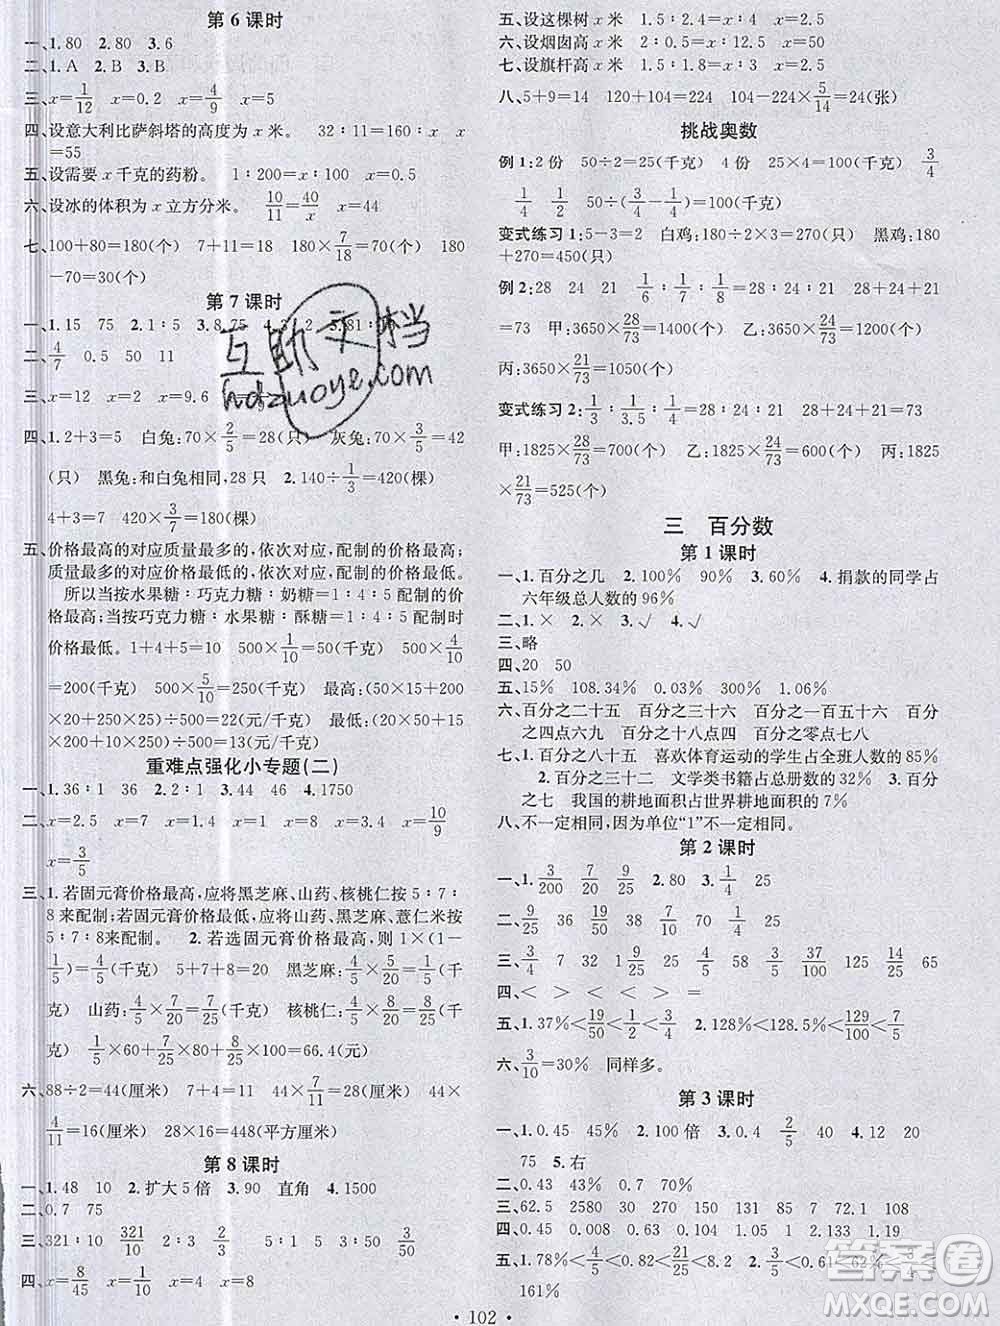 第6课时
一、1.80 2.80 3.6
二、1.A 2.B 3.B
三、x=1/12 x=0.2 x=4/9 x=5
四、设意大利比萨斜塔的高度为x米。 32∶11=160∶x x
=55
五、设需要x千克的药粉。 1∶200=x∶100 x=0.5
六、设冰的体积为x立方分米。 10/11=40/x x=44
七、100+80=180(个) 7+11=18 180×7/18=70(个) 180
-70=110(个)
第7课时
一、1.15 75 2.1∶5 3.8.75
二、4/7 0.5 50 11
三、x=12 x=2 x=9.6
四、1.2+3=5 白兔:70×2/5=28(只) 灰兔:70×3/5=42
(只) 黑兔:和白兔相同,28只 2.140×1/3=480(棵)
4+3=7 420×3/7=180(棵)
五、价格最高的对应质量最多的,依次对应,配制的价格最高;
质量最多的对应价格最低的,依次对应,配制的价格最低。
所以当按水果糖∶巧克力糖∶奶糖=1∶4∶5配制时价
格最高;当按巧克力糖∶水果糖∶酥糖=1∶4∶5配制时
价格最低。1+4+5=10 500×1/10=50(千克) 500×4/10
=200(千克) 500×5/10=250(千克) 最高:(50×15+200
×20+250×25)÷500=22(元) 最低:(50×20+200×15
+250×10)÷500=13(元)
重难点强化小专题(二)
一、1.36∶1 36 2.2∶1 3.48 4.1750
二、x=2.5 x=7 x=1 x=1 x=8 x=10/9
x=3/5
三、1.若固元膏价格最高,应将黑芝麻、山药、核桃仁按5∶7∶
8来配制;若固元膏价格最低,应将山药、黑芝麻、薏仁米按
5∶7∶8来配制。 2.若选固元膏价格最高,则1×(1-
1/5)=4/5(千克) 5+7+8=20 黑芝麻:4/5×5/20=1/5(千
克) 山药:4/5×7/20=7/25(千克) 核桃仁:4/5×8/20=8/25(千
克) 1/5×60+7/25×80+8/25×100=66.4(元)
六、88÷2=44(厘米) 7+4=11 44×7/11=28(厘米) 44×
4/11=16(厘米) 28×16=448(平方厘米)
第8课时
一、1.48 10 2.扩大5倍 3.90 直角 4.1500
二、0.7 75
三、321∶10 321/10 2∶3 2/3 5∶1 5 3∶50 3/50
四、x=8/45 x=10 x=4 x=8
五、设这棵树x米 1.5∶2.4=x∶4 x=2.5
六、设烟囱高x米 2∶0.5=x∶12.5 x=50
七、设旗杆高x米 1.5∶1.8=x∶3 x=2.5
八、5+9=14 120+104=224 104-224×5/14=24(张)
挑战奥数
例1:2份 50÷2=25(千克) 4份 25×4=100(千克) 3/4
1/4 2/4 50÷(3/4-1/4)=100(千克)
变式练习1:5-3=2 白鸡:180÷2×3=270(只) 黑鸡:180
+270=450(只)
例2:28 24 21 1/6∶1/7∶1/8=28∶24∶21 28+24+21
=73 甲:3650×28/73=1400(个) 乙:3650×24/73=1200(个)
丙:3650×21/73=1050(个)
变式练习2:1/3∶1/3.5∶1/4=28∶24∶21 28+24+21=73
甲:1825×28/73=700(个) 乙:1825×24/73=600(个) 丙:1825
×21/73=525(个)
三 百分数
第1课时
一、1.百分之几 2.100% 90% 3.60% 4.捐款的同学占
六年级总人数的96%
二、1.× 2.× 3.√ 4.√
三、略
四、20 50
五、15% 108.34% 0.03% 100% 300% 1.06%
六、百分之二十五 百分之三十六 百分之一百五十六 百分
之四点六九 百分之十点四 百分之零点七八
七、1.百分之八十五 喜欢体育运动的学生占全班人数的85%
2.百分之三十二 文学类书籍占总册数的32% 3.百分
之七 我国的耕地面积占世界耕地面积的7%
八、不一定相同,因为单位“1”不一定相同。
第2课时
一、1.3/200 7/10 71/100 2.80 3.1/4 25
二、9/25 36 19/50 38 2/25 8 1/2 50
三、3/4 7 32 1 9/25 25 4/5 58 37/100 12 14/25 65
四、< > < > > =
五、1.37%<19/50<1/2<3/4 2.128%<128.5%<129/100<7/5
六、3/10=30% 同样多。
第3课时
一、1.0.45 45% 2.100倍 3.0.4 2/5 40 4.12 20
75 5.右
二、0.43 43% 0.7 70%
三、62.5 2580 30 270 0.7 208 72.1 108
四、0.45 0.008 0.03 0.483 1.5 2.08
五、1.78%<4/5<0.82<21/25<84.2% 2.3/5<0.62
161%
·102·
互助文档
hdzuoye.com
答案圈
MXQE.COM